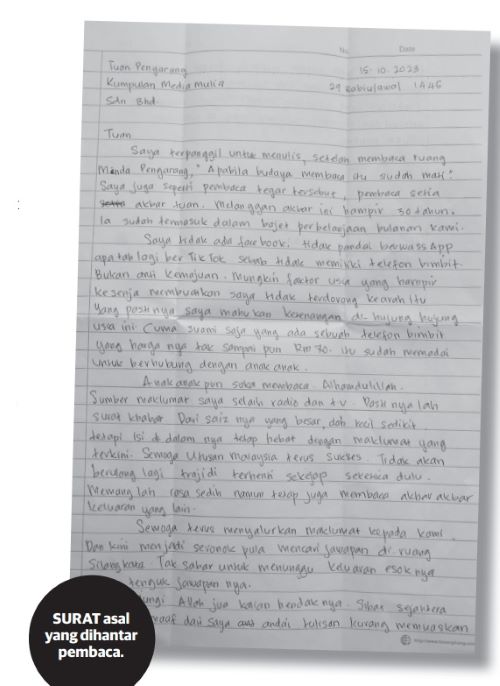 No.
Date
Tuan Pengarang
15.10.2023
Kumpulan Media Mulia
29 Rabiulawal 1445
Sdn Bhd.
Tuan
Saya terpanggil untuk menulis, setelah membaca ruang
Minda Pengarang, "Apabila budaya membaca itu sudah mati".
Saya juga seperti pembaca tegar tersebut, pembaca setia
akhbar tuan. Melanggan akhbar ini hampir 30 tahun.
Ia sudah termasuk dalam bajet perbelanjaan bulanan kami.
Saya tidak ada facebook, tidak pandai berwassApp
apatah lagi ber TikTok sebab tidak memiliki telefon bimbit.
Bukan anti kemajuan. Mungkin faktor usia yang hampir
ke senja membuatkan saya tidak terdorong kearah itu
Yang pastinya saya mahukan ketenangan di hujung hujung
usia ini. Cuma suami saja yang ada sebuah telefon bimbit
yang harga nya tak sampai pun Rm 70. Itu sudah memadai
untuk berhubung dengan anak anak.
Anak anak pun suka membaca. Alhamdulillah.
Sumber maklumat saya selain radio dan tv. Pasti nya lah
surat khabar. Dari saiz nya yang besar, dah kecil sedikit
tetapi isi di dalam nya tetap hebat dengan maklumat yang
terkini. Semoga Utusan Malaysia terus sukses. Tidak akan
berulang lagi trajidi terhenti sekejap seketika dulu.
Memang lah rasa sedih namun tetap juga membaca akhbar akhbar
keluaran yang lain.
Semoga terus menyalurkan maklumat kepada kami.
Dan kini menjadi seronok pula mencari jawapan di ruang
silangkata. Tak sabar untuk menunggu keluaran esok nya
tengok jawapan nya.
Allah jua kalian hendak nya. Sihat sejahtera
maaf dari saya andai tulisan kurang memuaskan
SURAT asal
yang dihantar
pembaca.